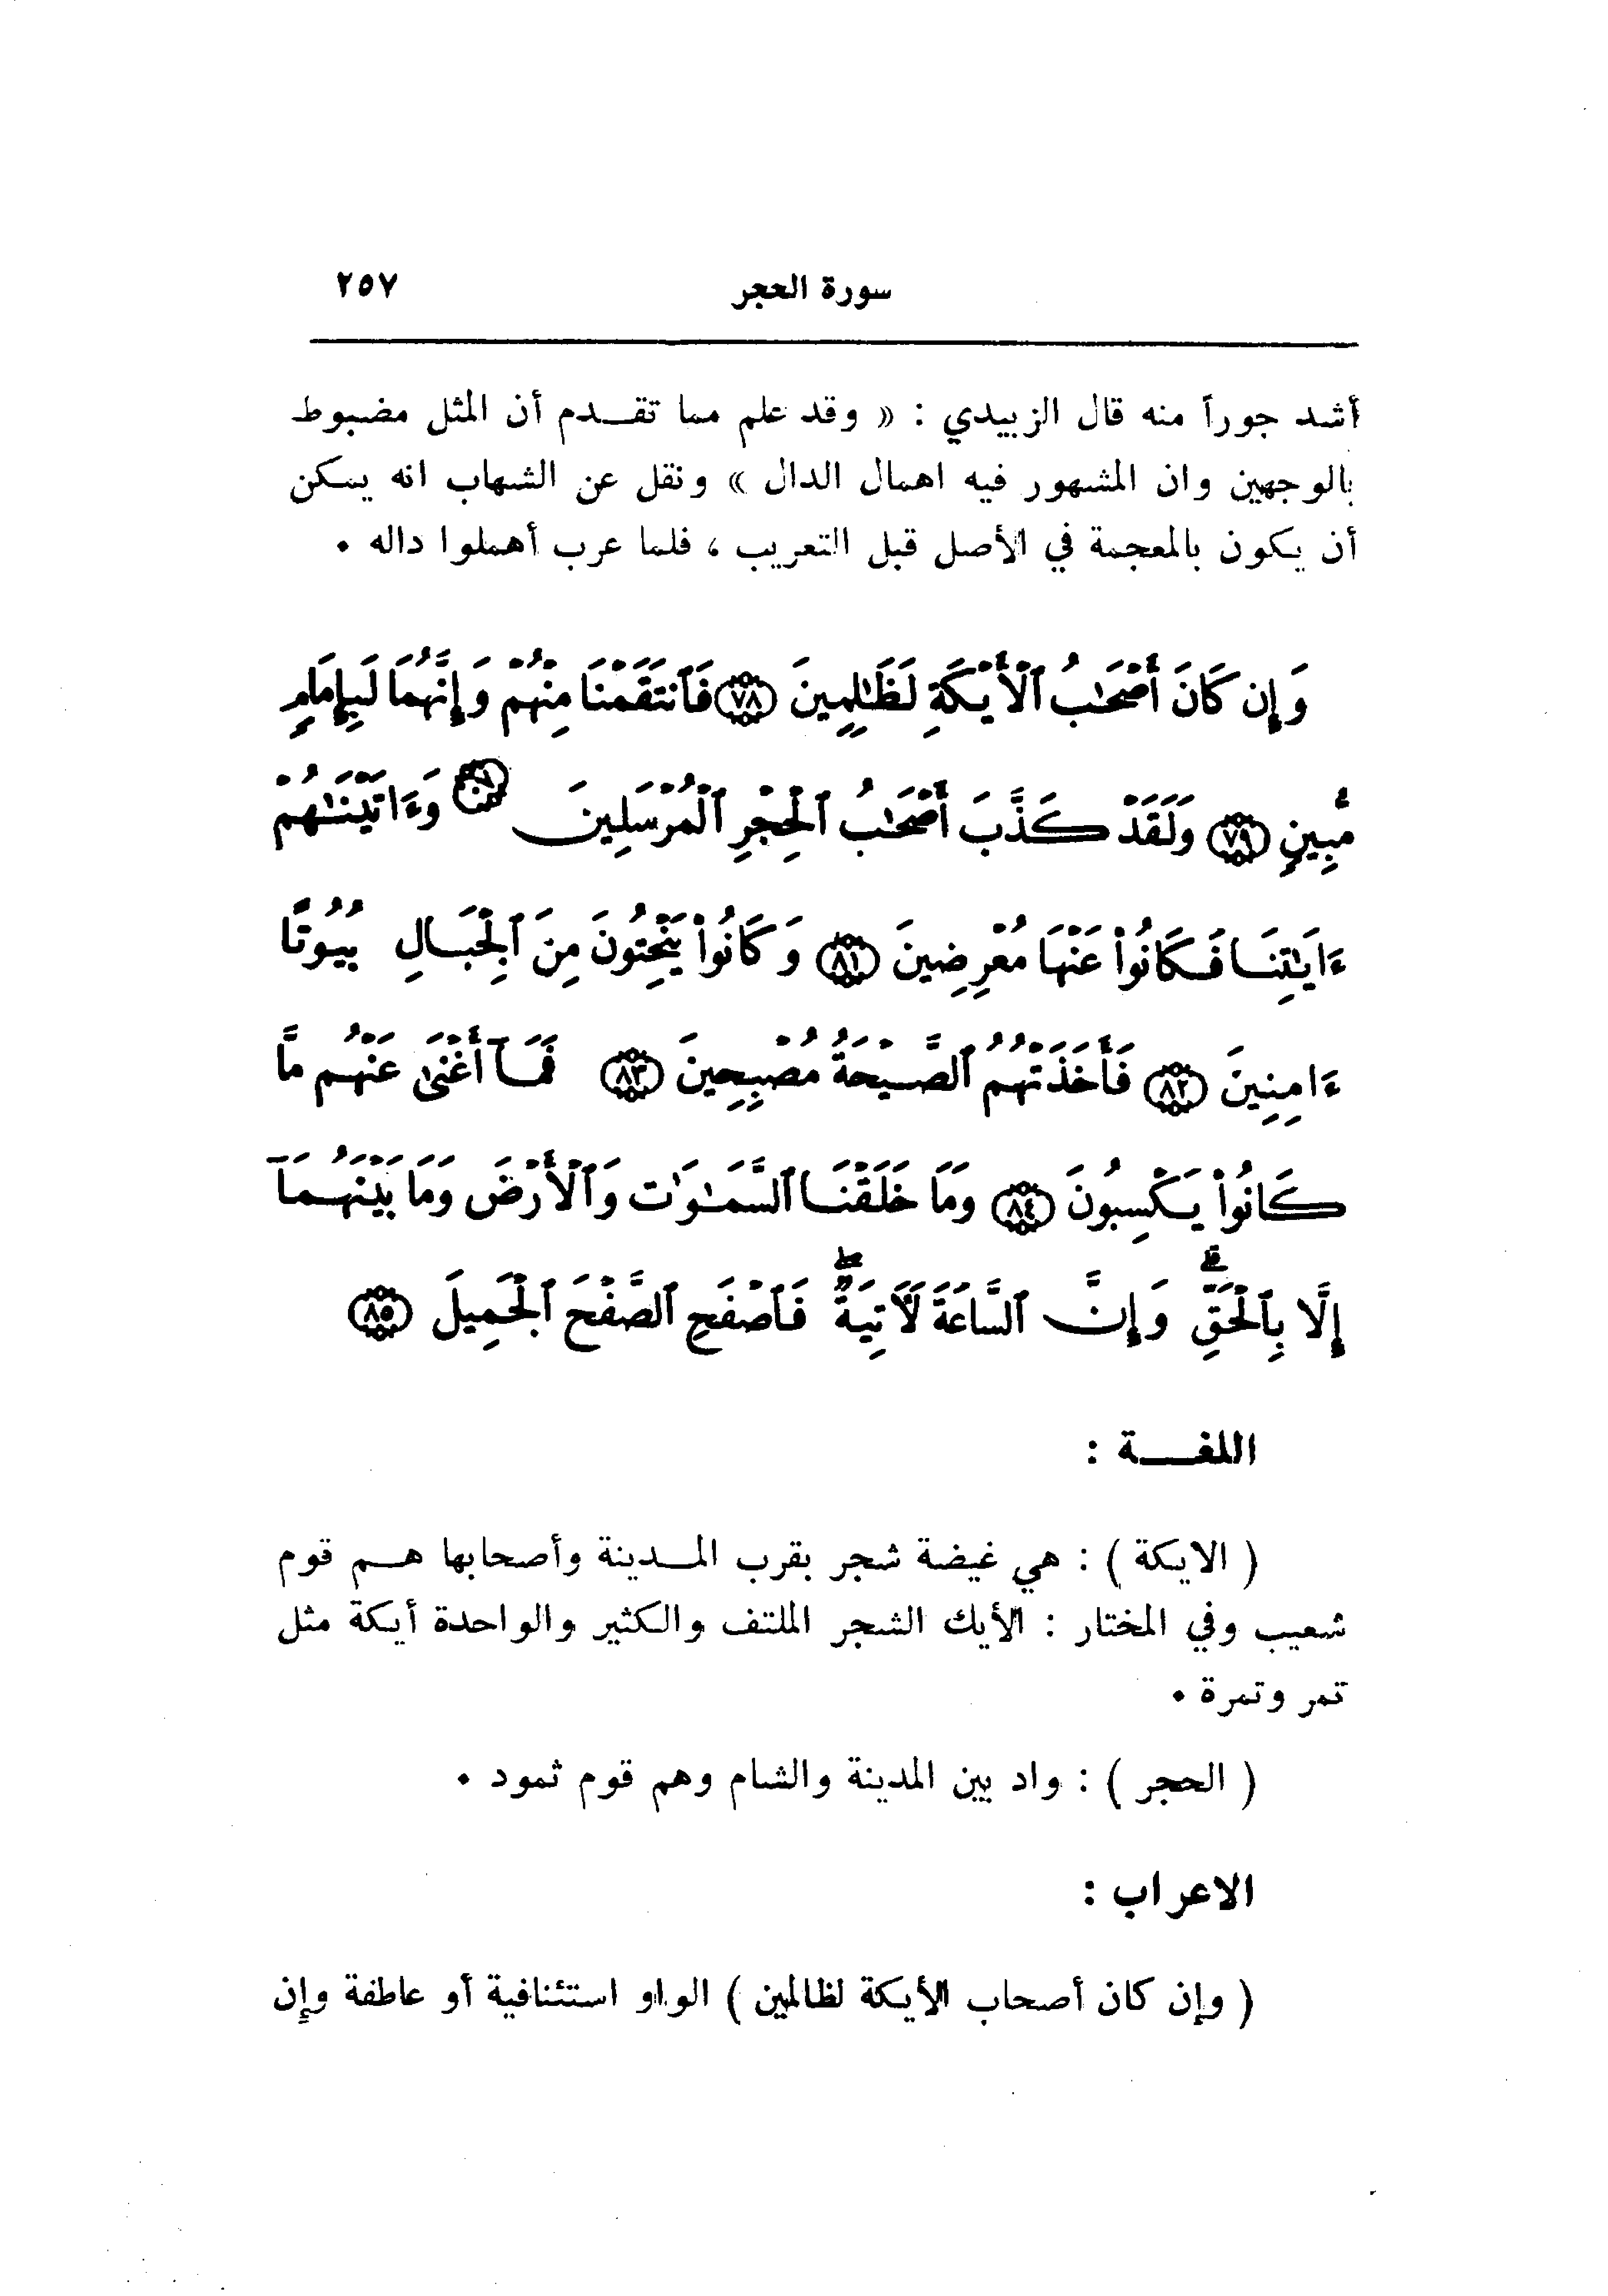 سورة الحجر ٢٥٧
أشد جوراً منه قال الزبيدي : « وقد علم مما تقـــدم أن المثل مضبوط
بالوجهين وان المشهور فيه اهمال الدال » ونقل عن الشهاب انه يمكن
أن يكون بالمعجمة في الأصل قبل التعريب ، فلما عرب أهملوا داله .
وَإِن كَانَ أَصْحَٰبُ ٱلْأَيْكَةِ لَظَٰلِمِينَ ﴿٧٨﴾ فَٱنتَقَمْنَا مِنْهُمْ وَإِنَّهُمَا لَبِإِمَامٍ
مُّبِينٍ ﴿٧٩﴾ وَلَقَدْ كَذَّبَ أَصْحَٰبُ ٱلْحِجْرِ ٱلْمُرْسَلِينَ ﴿٨٠﴾ وَءَاتَيْنَٰهُمْ
ءَايَٰتِنَا فَكَانُوا۟ عَنْهَا مُعْرِضِينَ ﴿٨١﴾ وَكَانُوا۟ يَنْحِتُونَ مِنَ ٱلْجِبَالِ بُيُوتًا
ءَامِنِينَ ﴿٨٢﴾ فَأَخَذَتْهُمُ ٱلصَّيْحَةُ مُصْبِحِينَ ﴿٨٣﴾ فَمَآ أَغْنَىٰ عَنْهُم مَّا
كَانُوا۟ يَكْسِبُونَ ﴿٨٤﴾ وَمَا خَلَقْنَا ٱلسَّمَٰوَٰتِ وَٱلْأَرْضَ وَمَا بَيْنَهُمَآ
إِلَّا بِٱلْحَقِّ ۗ وَإِنَّ ٱلسَّاعَةَ لَآتِيَةٌ ۖ فَٱصْفَحِ ٱلصَّفْحَ ٱلْجَمِيلَ ﴿٨٥﴾
اللغـــة :
( الايكة ) : هي غيضة شجر بقرب المـــدينة وأصحابها هـــم قوم
شعيب وفي المختار : الأيك الشجر الملتف والكثير والواحدة أيكة مثل
تمر وتمرة .
( الحجر ) : واد بين المدينة والشام وهم قوم ثمود .
الاعراب :
( وإن كان أصحاب الأيكة لظالمين ) الواو استئنافية أو عاطفة وإن